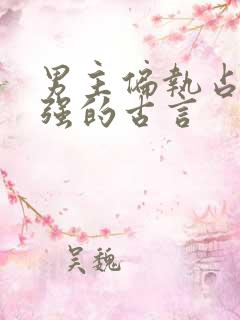 男主偏执占
强的古言
吴魏